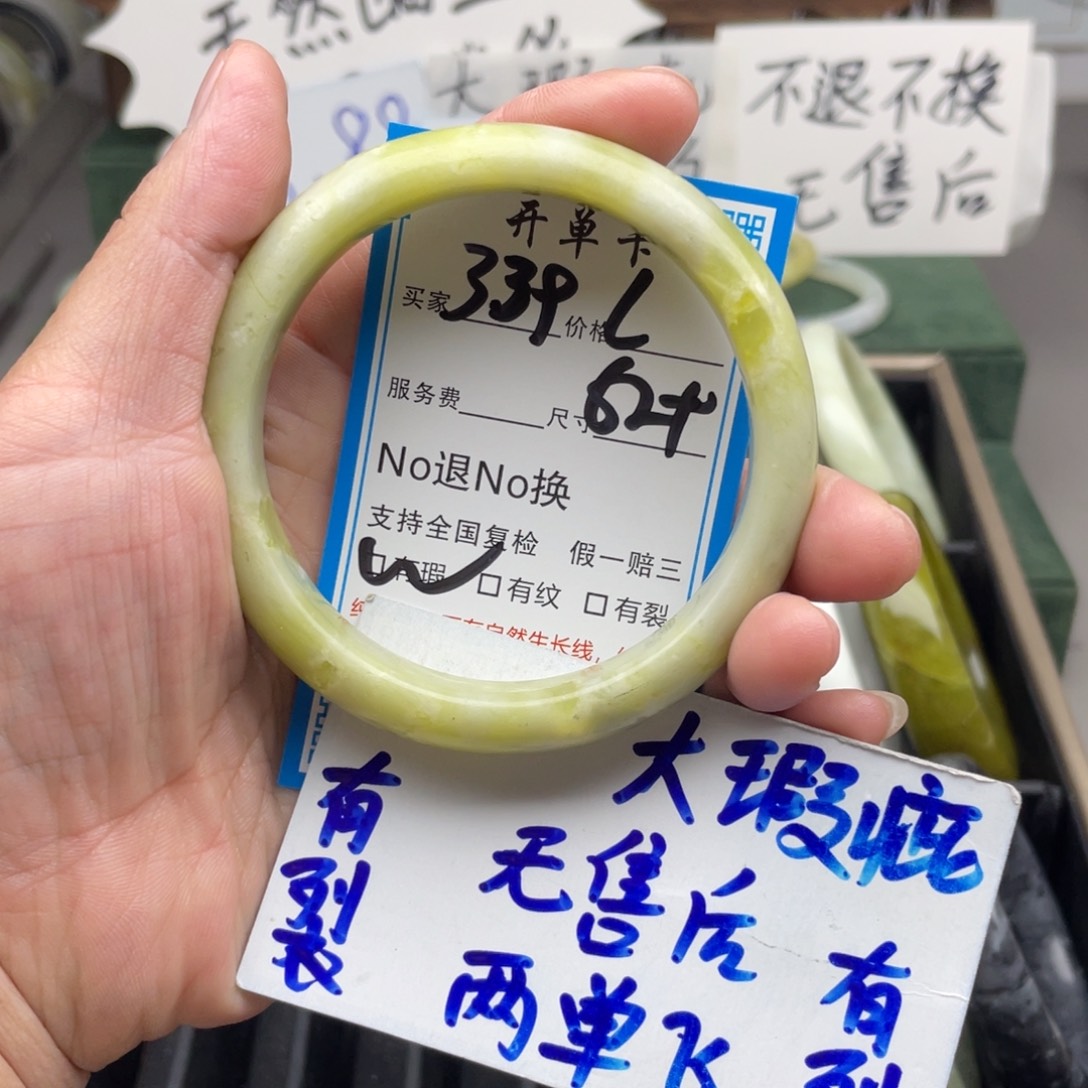 天然
88
不退不换
无售后
开单卡
买家 339 价格 L
服务费 尺寸 62+
No退No换
支持全国复检 假一赔三
有瑕 有纹 有裂
有自然生长线,
有裂
大瑕疵
无售后
两单飞
有裂